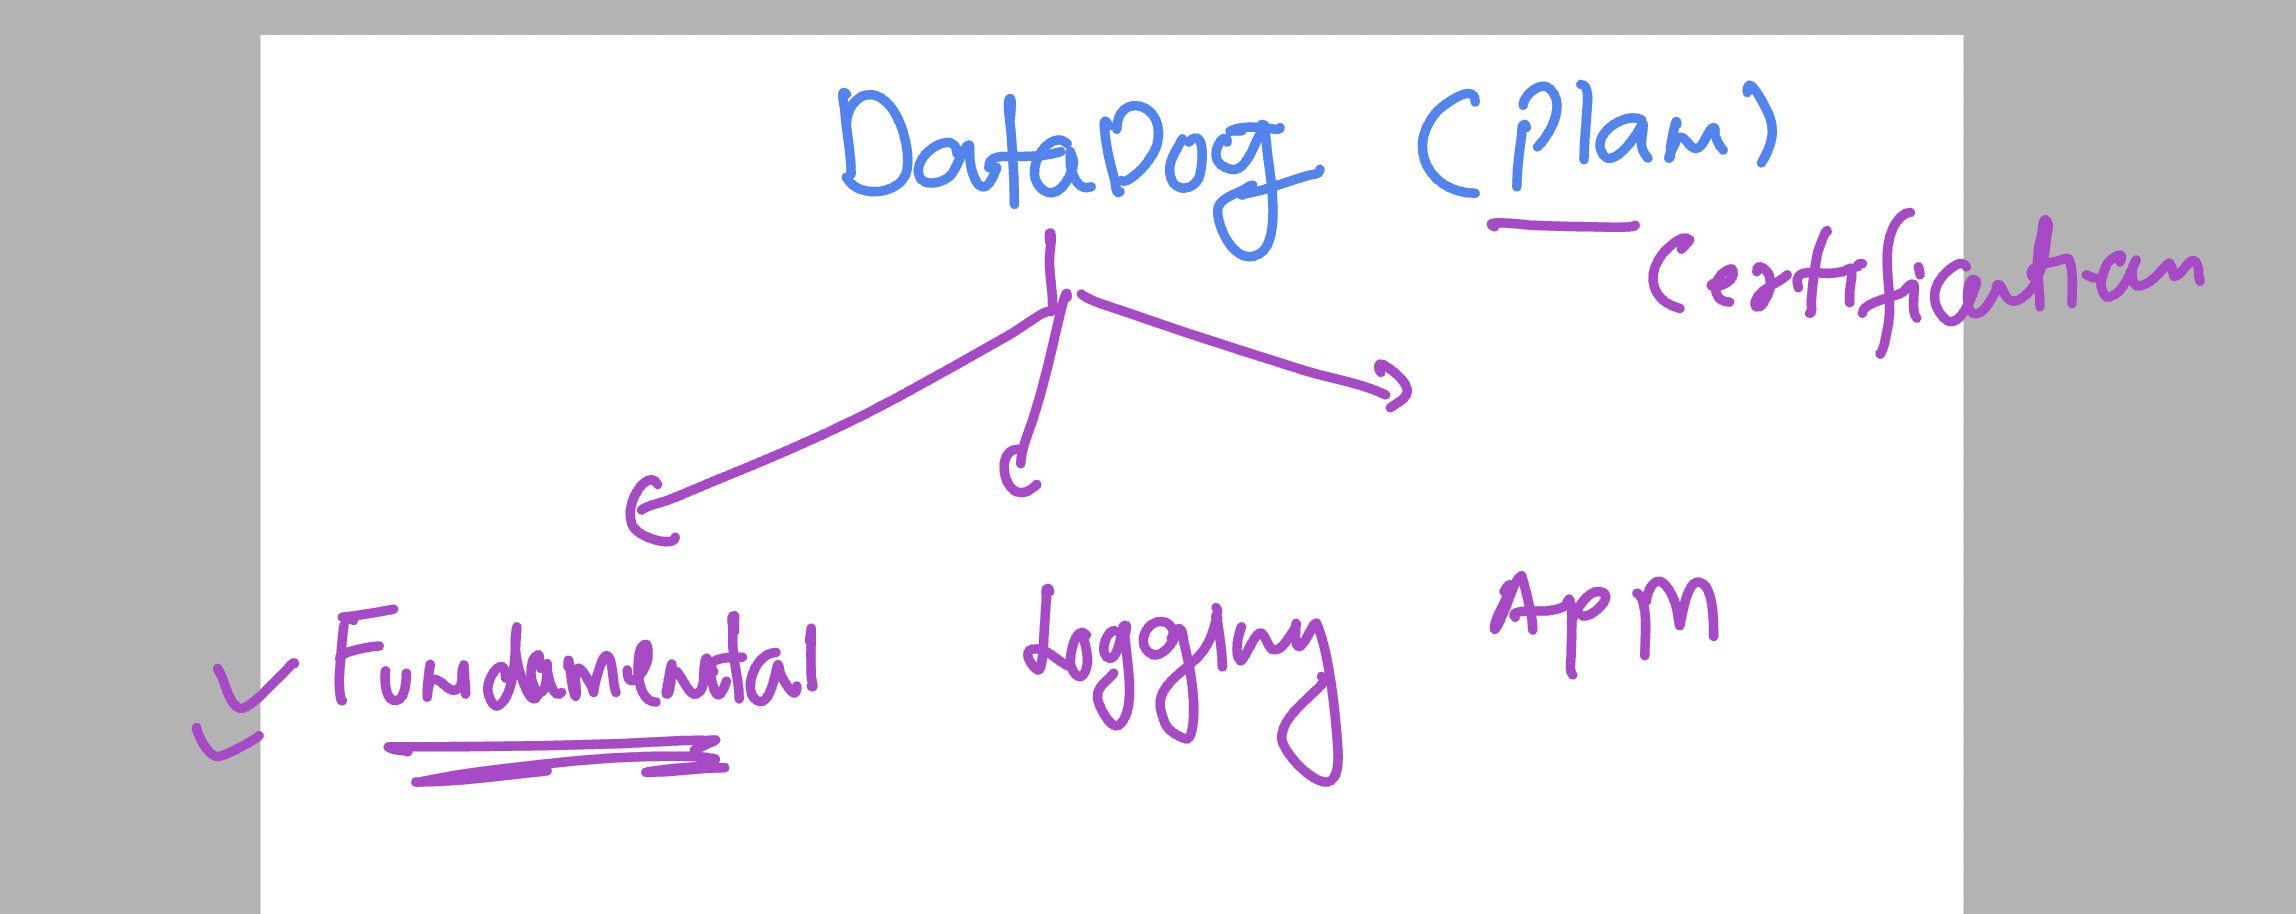 DataDog (Plan)
Certification
Fundamental Logging APM